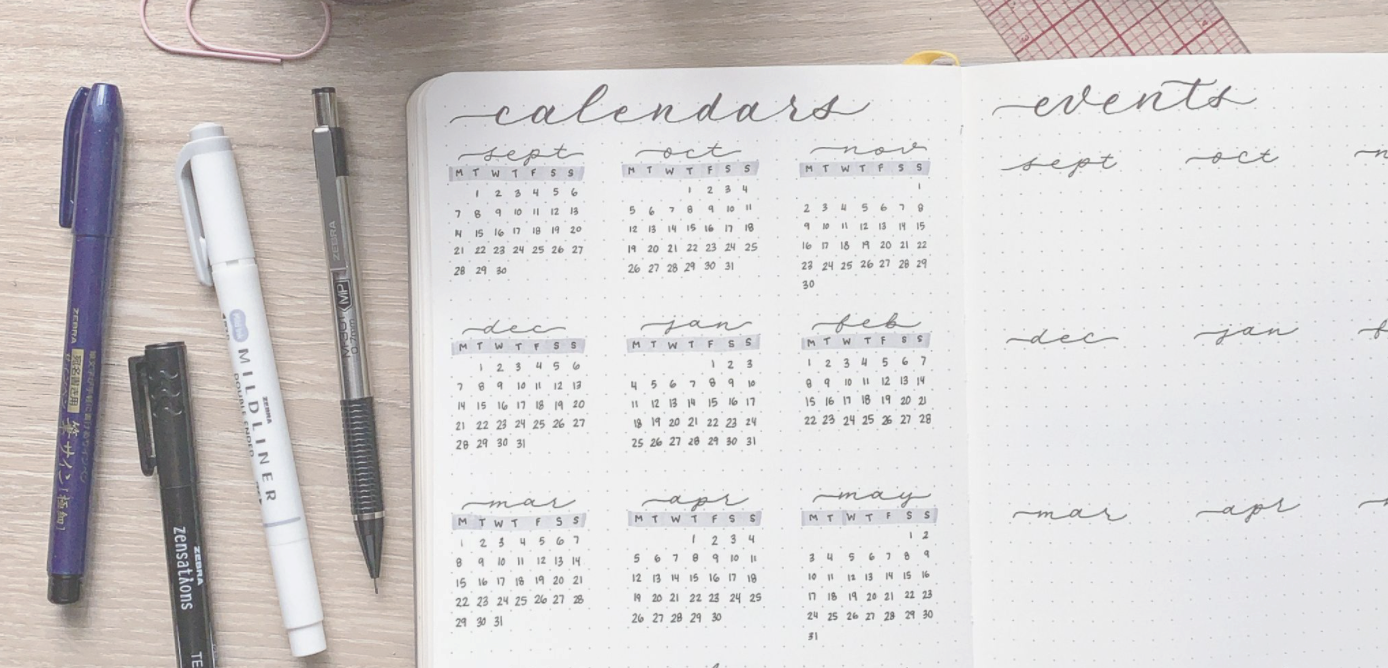 calendars
sept
M T W T F S S
1 2 3 4 5 6
7 8 9 10 11 12 13
14 15 16 17 18 19 20
21 22 23 24 25 26 27
28 29 30
oct
M T W T F S S
1 2 3 4
5 6 7 8 9 10 11
12 13 14 15 16 17 18
19 20 21 22 23 24 25
26 27 28 29 30 31
nov
M T W T F S S
1
2 3 4 5 6 7 8
9 10 11 12 13 14 15
16 17 18 19 20 21 22
23 24 25 26 27 28 29
30
dec
M T W T F S S
1 2 3 4 5 6
7 8 9 10 11 12 13
14 15 16 17 18 19 20
21 22 23 24 25 26 27
28 29 30 31
jan
M T W T F S S
1 2 3
4 5 6 7 8 9 10
11 12 13 14 15 16 17
18 19 20 21 22 23 24
25 26 27 28 29 30 31
feb
M T W T F S S
1 2 3 4 5 6 7
8 9 10 11 12 13 14
15 16 17 18 19 20 21
22 23 24 25 26 27 28
mar
M T W T F S S
1 2 3 4 5 6 7
8 9 10 11 12 13 14
15 16 17 18 19 20 21
22 23 24 25 26 27 28
29 30 31
apr
M T W T F S S
1 2 3 4
5 6 7 8 9 10 11
12 13 14 15 16 17 18
19 20 21 22 23 24 25
26 27 28 29 30
may
M T W T F S S
1 2
3 4 5 6 7 8 9
10 11 12 13 14 15 16
17 18 19 20 21 22 23
24 25 26 27 28 29 30
31
events
sept
oct
dec
jan
mar
apr
ZEBRA
筆サイン〔極細〕
ZEBRA
zensations
ZEBRA
MILDLINER
DOUBLE ENDED
ZEBRA